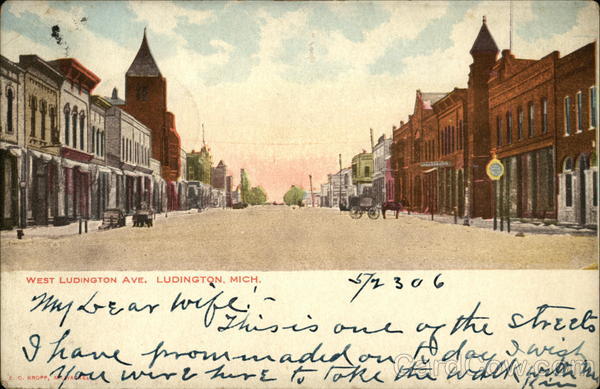 WEST LUDINGTON AVE. LUDINGTON, MICH.
5/23 06
My Dear Wife! -
This is one of the streets
I have prommaded on to day I wish
You were here to take the walk with me
E. C. KROPP,
CardCow.com